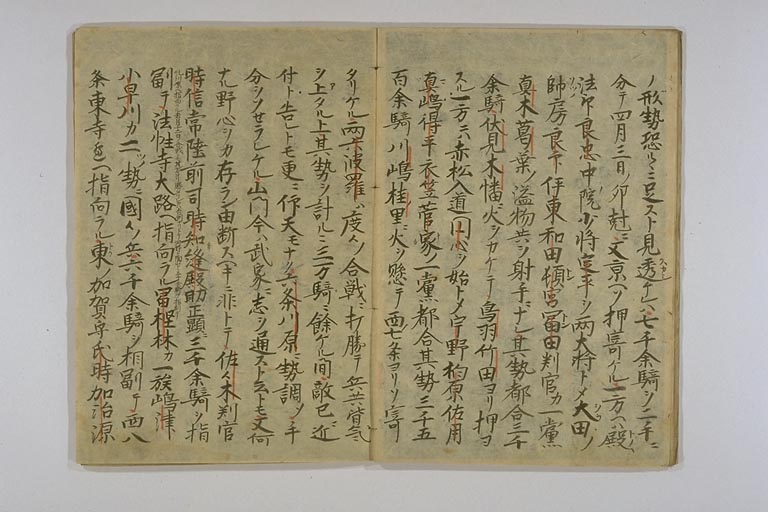 ノ形勢恐ルヽニ足スト見透テ七千余騎ヲ二手ニ
分テ四月三日ノ卯尅ニ又京ヘソ押寄ケル一方ハ殿
法印良忠中院少将定平ヲ両大将トメ大田ノ
帥房良下伊東和田頓宮冨田判官カ一黨
真木葛葉ノ溢物共ヲ射手ニナシ其勢都合三千
余騎伏見木幡ニ火ヲカケテ鳥羽竹田ヨリ押ヨ
スル一方ニハ赤松入道円心ヲ始トメ宇野柏原佐用
真嶋得平衣笠菅家ノ一黨都合其勢三千五
百余騎川嶋桂里ニ火ヲ懸テ西七条ヨリソ寄
タリケル両六波羅ハ度々ノ合戦ニ打勝テ兵共皆気
ヲ上タル上其勢ヲ計ルニ三万騎ニ餘ケル間敵已近
付ト告レトモ更ニ仰天モナク六条川原ニ勢調メ手
分ヲソセラレケル山門今ハ武家ニ志ヲ通ストモ又何
ナル野心ヲカ存ラン由断スヘキニ非トテ佐々木判官
時信常陸前司時知縫殿助正顕ニ三千余騎ヲ指
副テ法性寺大路ヘ指向ラル冨樫林カ一族嶋津
小早川カ二勢ニ國々ノ兵六千余騎ヲ相副テ西八
条東寺辺ヘ指向ラル東ハ加賀守氏時加治源